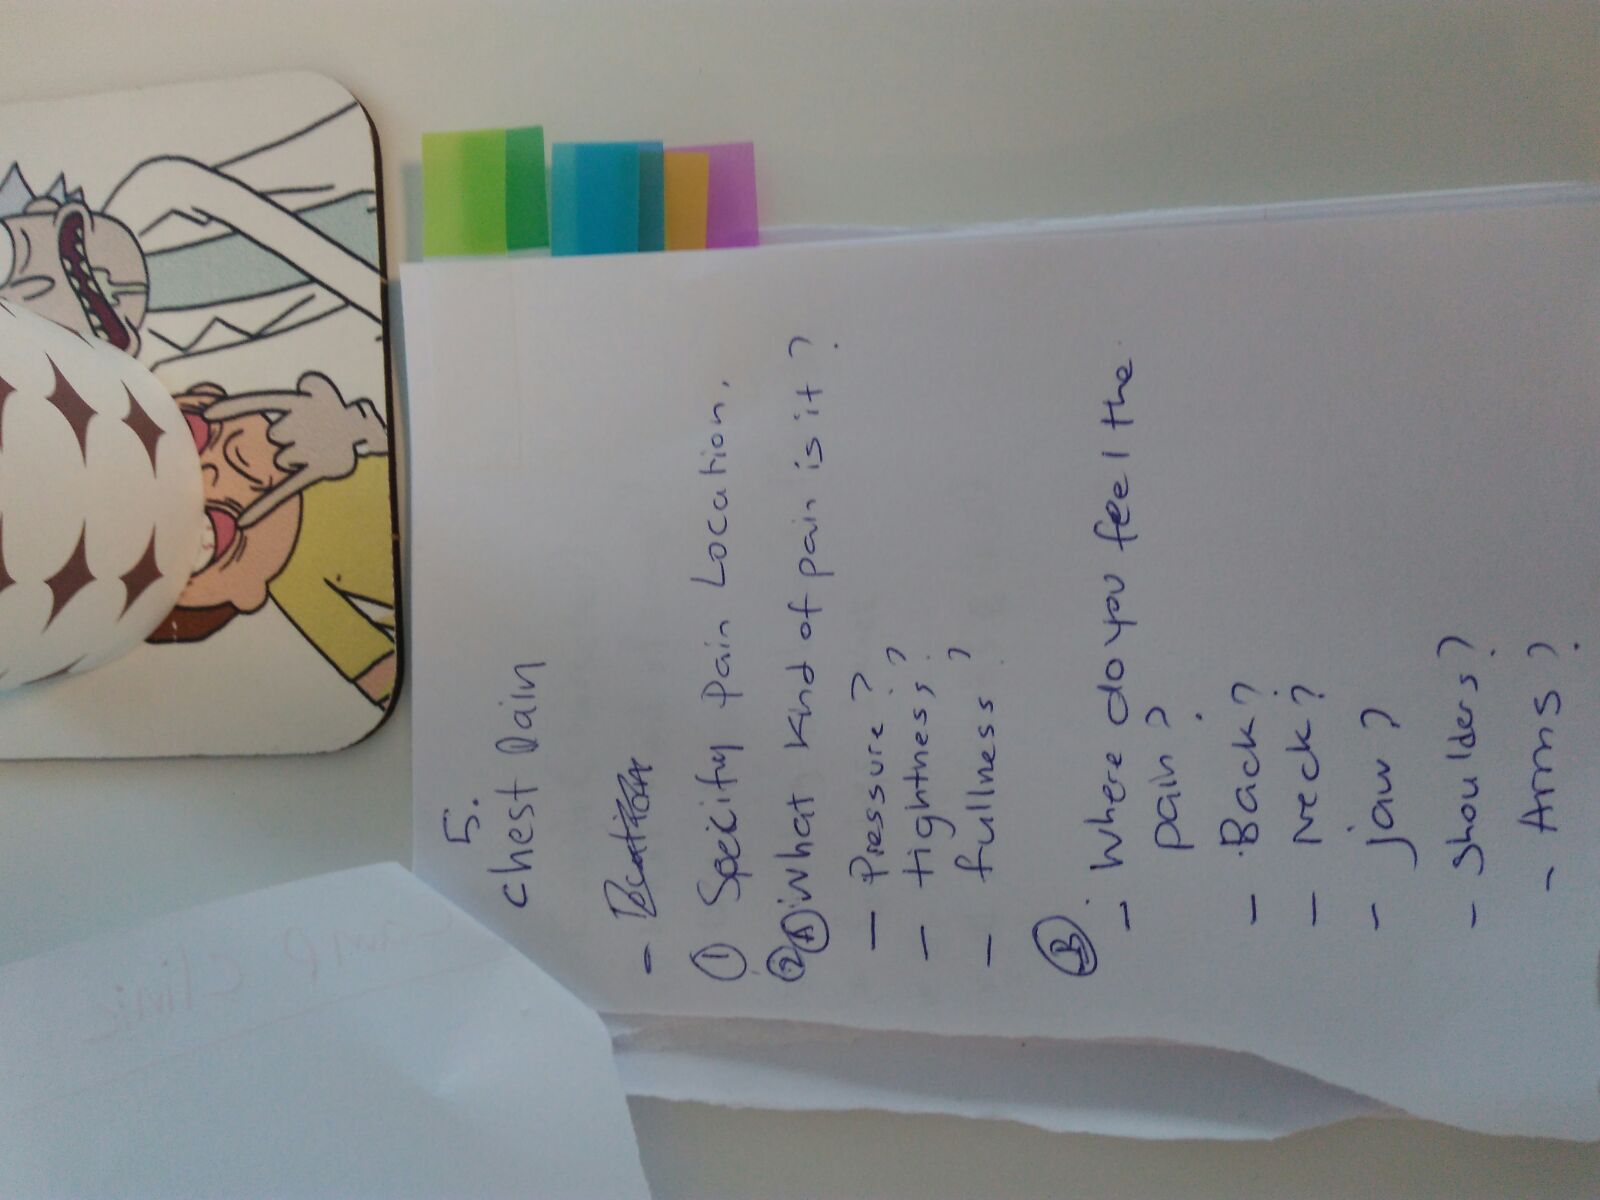 5.
Chest Pain
-
① Specify Pain Location.
② Ⓐ What kind of pain is it?
- Pressure?
- tightness?
- fullness?
Ⓑ
- Where do you feel the
pain?
- Back?
- Neck?
- jaw?
- Shoulders?
- Arms?